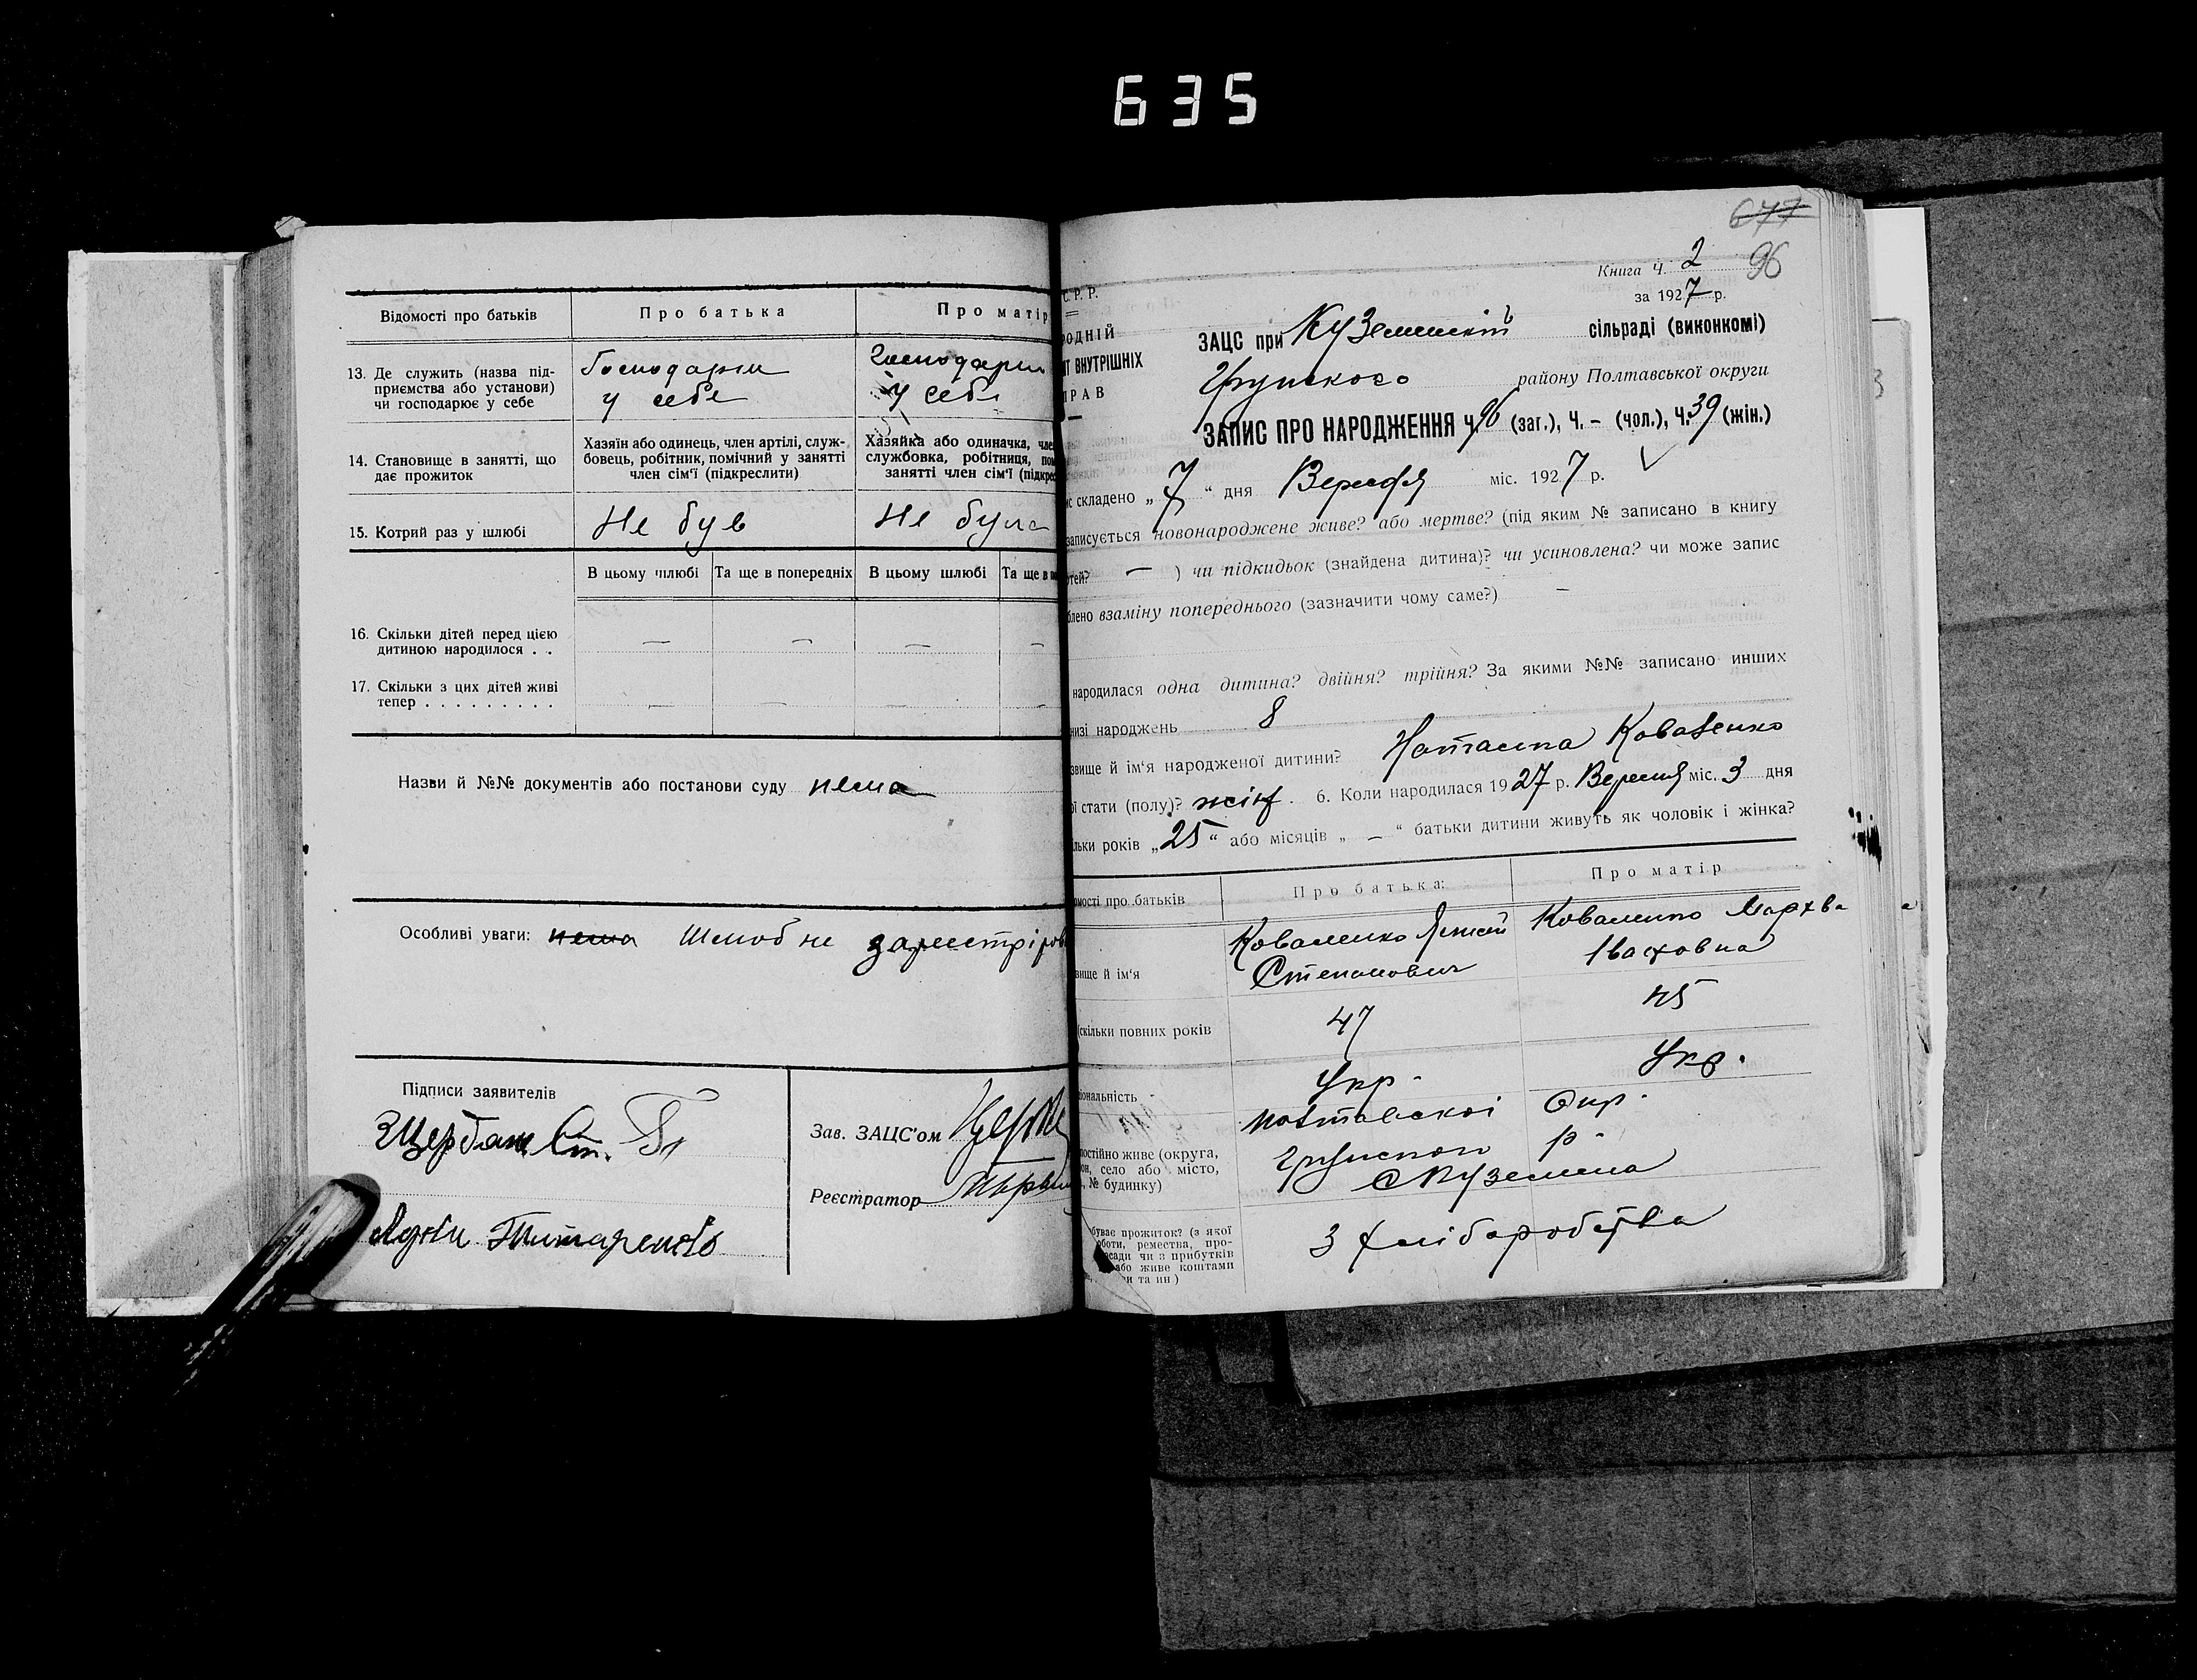 635
Відомості про батьків
Про батька
Про матір
13. Де служить (назва під-
приємства або установи)
чи господарює у себе
Господарює
у себе
Господарює
у себе
14. Становище в занятті, що
дає прожиток
Хазяїн або одинець, член артілі, служ-
бовець, робітник, помічний у занятті
член сім'ї (підкреслити)
Хазяйка або одиначка, чле
службовка, робітниця, пом
занятті член сім'ї (підкрес
15. Котрий раз у шлюбі
Не був
Не була
В цьому шлюбі
Та ще в попередніх
В цьому шлюбі
Та ще в по
16. Скільки дітей перед цією
дитиною народилося . .
— — — —
17. Скільки з цих дітей живі
тепер . . . . . . . . .
— — — —
Назви й №№ документів або постанови суду нема
Особливі уваги: нема Шлюб не зареєстрiров
Підписи заявителів
Щербань Ст.
Титаренко
Зав. ЗАЦС'ом
Реєстратор
677
96
Книга ч. 2
за 1927 р.
С. Р. Р.
РОДНІЙ
Т ВНУТРІШНІХ
ПРАВ
ЗАЦС при Куземинській сільраді (виконкомі)
Грунського району Полтавської округи
ЗАПИС ПРО НАРОДЖЕННЯ ч. 96 (заг.), Ч. – (чол.), Ч. 39 (жін.)
ис складено „7“ дня Вересня міс. 1927 р.
записується новонароджене живе? або мертве? (під яким № записано в книгу
ртей? — ) чи підкидьок (знайдена дитина)? чи усиновлена? чи може запис
блено взаміну попереднього (зазначити чому саме?) —
народилася одна дитина? двійня? трійня? За якими №№ записано инших
низі народжень 8
звище й ім'я народженої дитини? Наташка Коваленко
ої стати (полу)? жін. 6. Коли народилася 1927 р. Вересня міс. 3 дня
льки років „25“ або місяців „ — “ батьки дитини живуть як чоловік і жінка?
омості про батьків
Про батька:
Про матір
звище й ім'я
Коваленко
Степанович
Коваленко Мархва
(скільки повних років
47
45
іональність
Укр.
Укр.
постійно живе (округа,
он, село або місто,
, № будинку)
Полтавскоі Окр.
Грунскоп р.
с Куземина
буває прожиток? (з якої
оботи, ремества, про-
осади чи з прибутків
або живе коштами
ри та ин )
З хліборобства